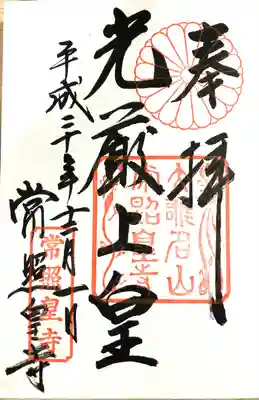 奉拝
大雄名山
常照皇寺
光厳上皇
平成二十年十二月一日
常照皇寺
常照皇寺